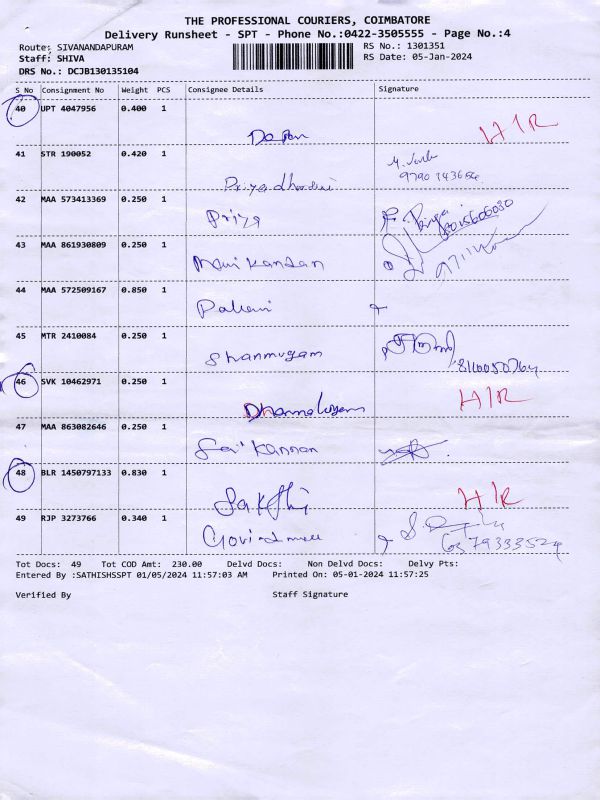 THE PROFESSIONAL COURIERS, COIMBATORE
Delivery Runsheet - SPT - Phone No.:0422-3505555 - Page No.:4
Route: SIVANANDAPURAM RS No.: 1301351
Staff: SHIVA RS Date: 05-Jan-2024
DRS No.: DCJB130135104
S No Consignment No Weight PCS Consignee Details Signature
40 UPT 4047956 0.400 1
H/R
41 STR 190052 0.420 1
Priyadharshini 9790743654
42 MAA 573413369 0.250 1
Priya
43 MAA 861930809 0.250 1
Manikandan
44 MAA 572509167 0.850 1
Palani
45 MTR 2410084 0.250 1
Shanmugam
46 SVK 10462971 0.250 1
H/R
47 MAA 863082646 0.250 1
Sai Kannan
48 BLR 1450797133 0.830 1
Sakthi H/R
49 RJP 3273766 0.340 1
6379333524
Tot Docs: 49 Tot COD Amt: 230.00 Delvd Docs: Non Delvd Docs: Delvy Pts:
Entered By :SATHISHSSPT 01/05/2024 11:57:03 AM Printed On: 05-01-2024 11:57:25
Verified By Staff Signature